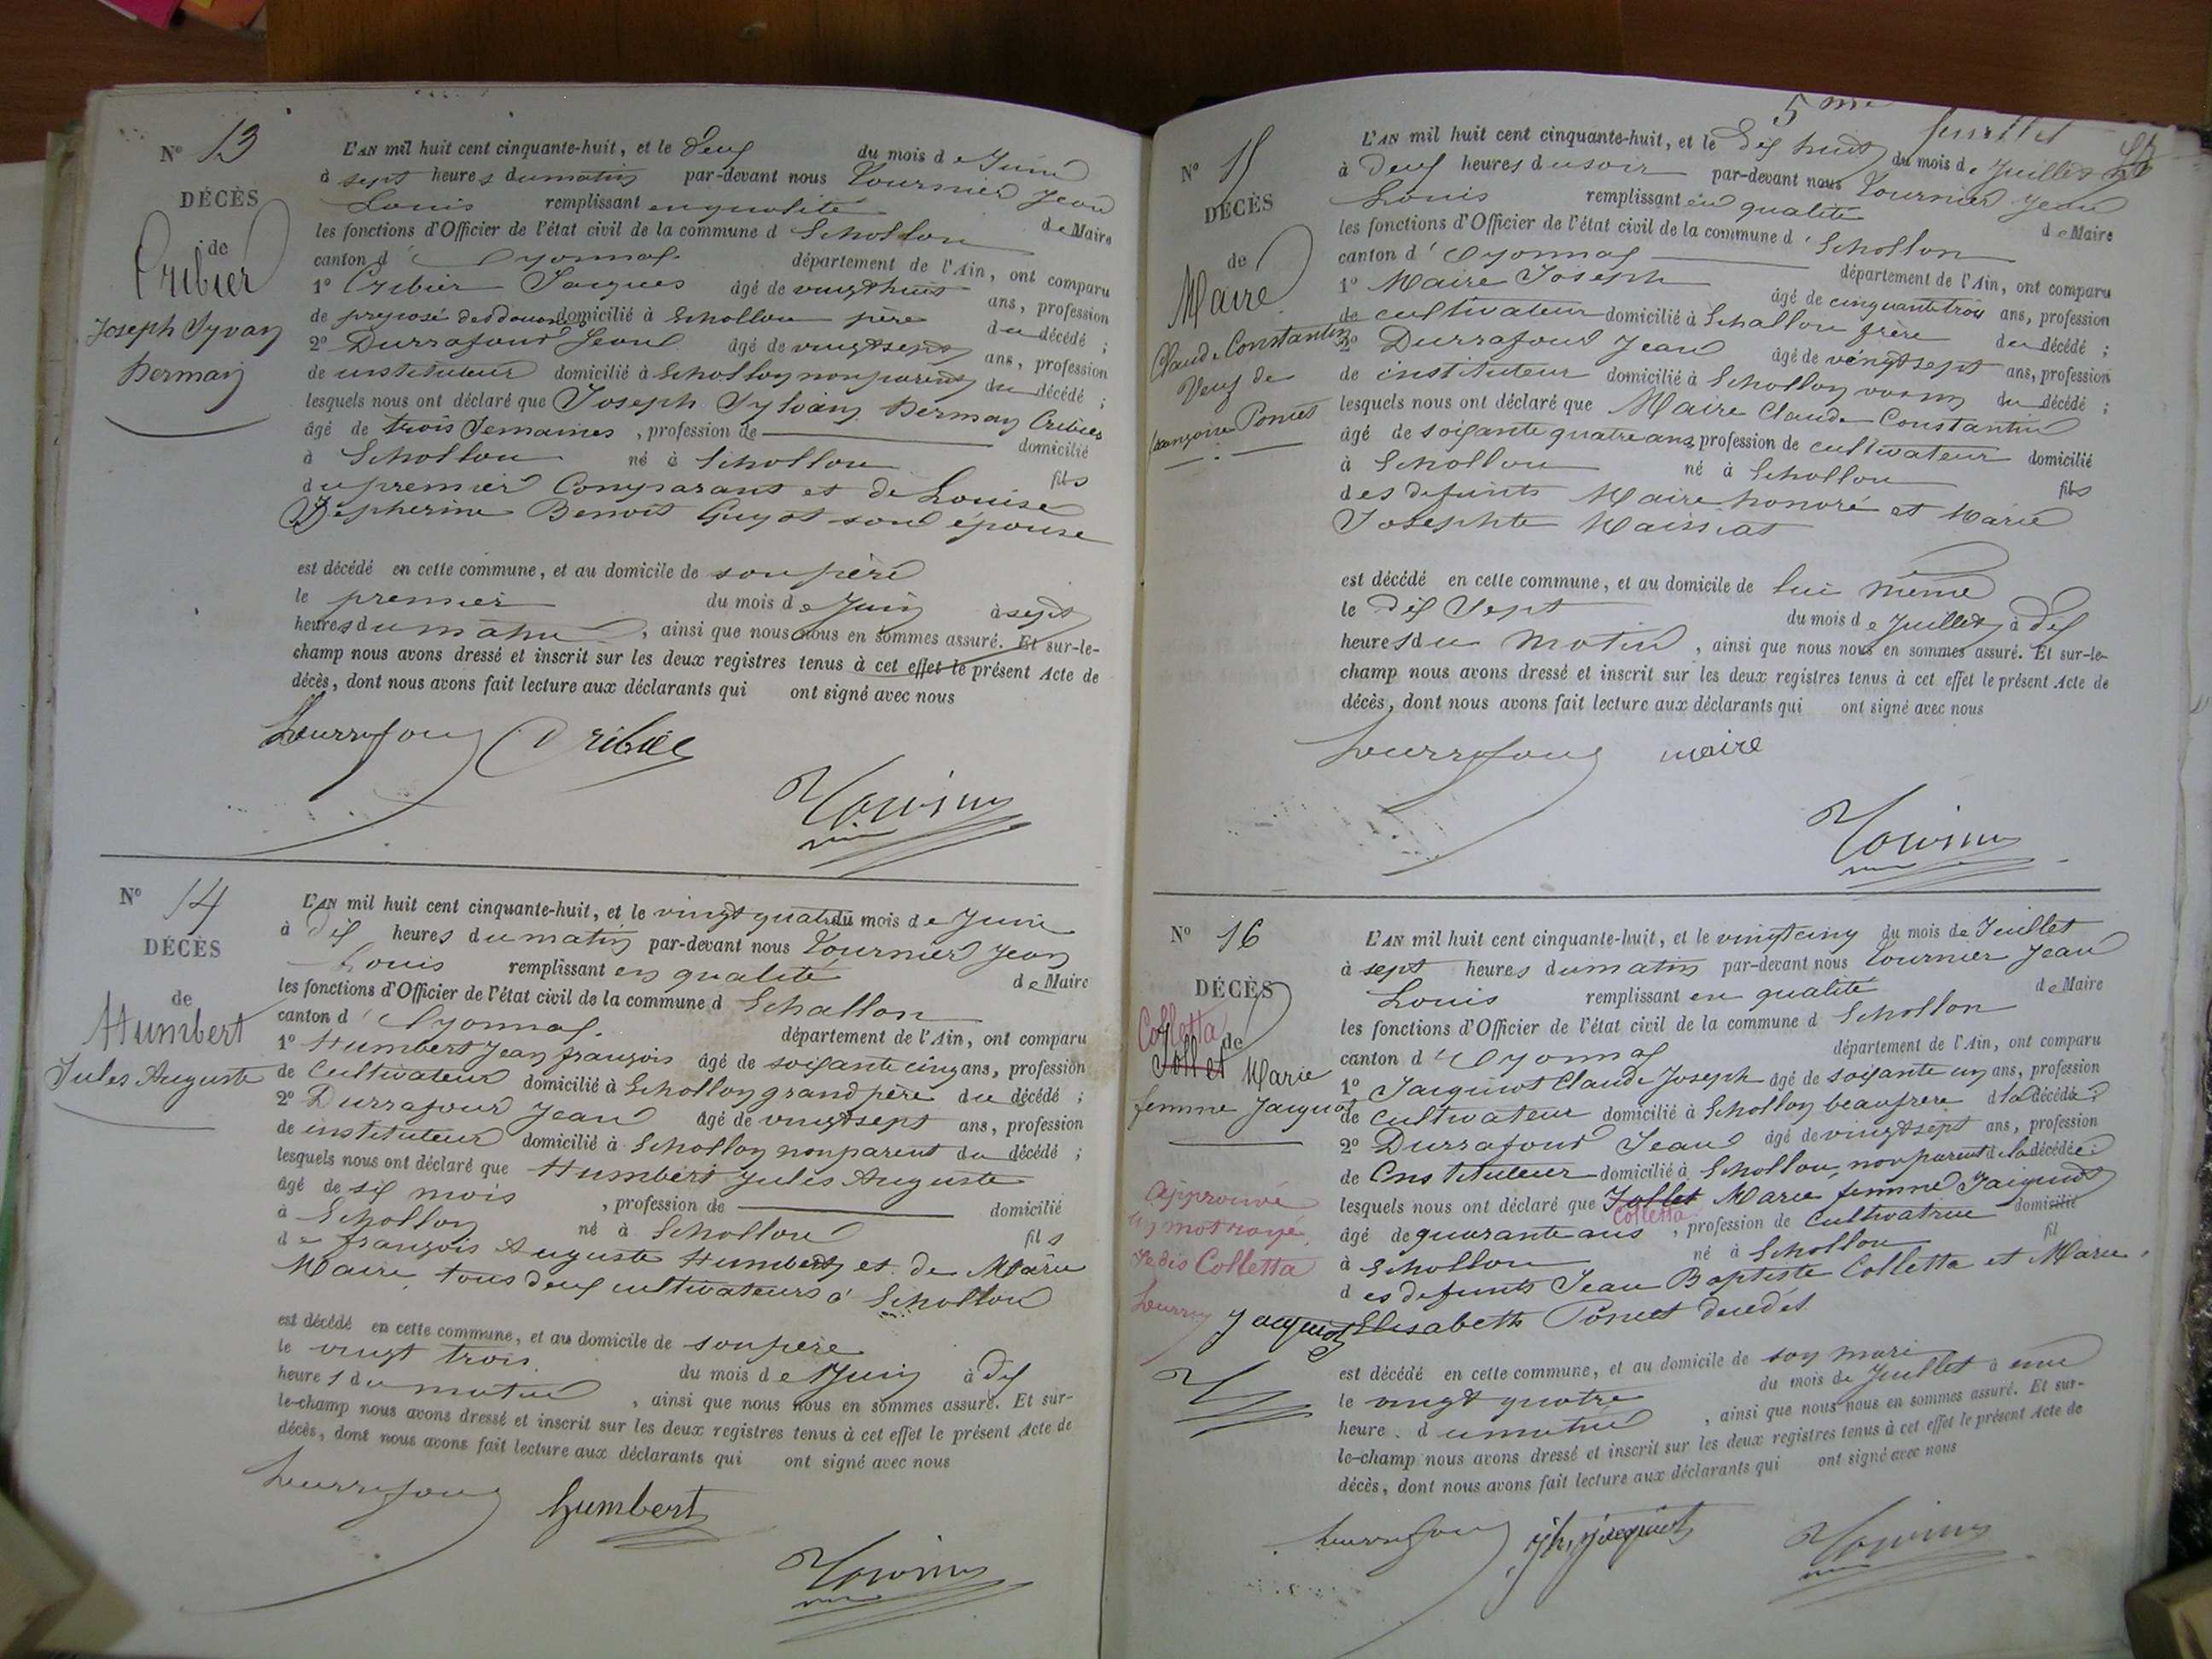 N° 13
DÉCÈS
de
Cribier
Joseph Sylvain
Germain
L'AN mil huit cent cinquante-huit, et le Deux du mois de Juin
à sept heures du matin par-devant nous Tournier Jean
Louis remplissant en qualité de Maire
les fonctions d'Officier de l'état civil de la commune d Echallon
canton d'Oyonnax département de l'Ain, ont comparu
1° Cribier Jacques âgé de vingt huit ans, profession
de préposé des douanes domicilié à Echallon père du décédé ;
2° Durrafour Jean âgé de vingt sept ans, profession
de instituteur domicilié à Echallon non parent du décédé ;
lesquels nous ont déclaré que Joseph Sylvain Germain Cribier
âgé de trois Semaines, profession de domicilié
à Echallon né à Echallon fils
du premier Comparant et de Louise
Benoit Guyot son épouse
est décédé en cette commune, et au domicile de son père
le premier du mois de Juin à sept
heures du matin, ainsi que nous nous en sommes assuré. Et sur-le-
champ nous avons dressé et inscrit sur les deux registres tenus à cet effet le présent Acte de
décès, dont nous avons fait lecture aux déclarants qui ont signé avec nous
Durrafour Cribier
Tournier
N° 14
DÉCÈS
de
Humbert
Jules Auguste
L'AN mil huit cent cinquante-huit, et le vingt quatre du mois de Juin
à dix heures du matin par-devant nous Tournier Jean
Louis remplissant en qualité de Maire
les fonctions d'Officier de l'état civil de la commune d Echallon
canton d'Oyonnax département de l'Ain, ont comparu
1° Humbert Jean françois âgé de soixante cinq ans, profession
de Cultivateur domicilié à Echallon grand père du décédé ;
2° Durrafour Jean âgé de vingt sept ans, profession
de instituteur domicilié à Echallon non parent du décédé ;
lesquels nous ont déclaré que Humbert Jules Auguste
âgé de six mois, profession de domicilié
à Echallon né à Echallon fils
de françois Auguste Humbert et de Marie
Maire, tous deux cultivateurs à Echallon
est décédé en cette commune, et au domicile de son père
le vingt trois du mois de Juin à dix
heures du matin, ainsi que nous nous en sommes assuré. Et sur-
le-champ nous avons dressé et inscrit sur les deux registres tenus à cet effet le présent Acte de
décès, dont nous avons fait lecture aux déclarants qui ont signé avec nous
Durrafour humbert
Tournier
5me feuillet
N° 15
DÉCÈS
de
Maire
Claude Constantin
Veuf de
françoise Poncet
L'AN mil huit cent cinquante-huit, et le dix huit du mois de Juillet
à deux heures du soir par-devant nous Tournier Jean
Louis remplissant en qualité de Maire
les fonctions d'Officier de l'état civil de la commune d'Echallon
canton d'Oyonnax département de l'Ain, ont comparu
1° Maire Joseph âgé de cinquante trois ans, profession
de cultivateur domicilié à Echallon frère du décédé ;
2° Durrafour Jean âgé de vingt sept ans, profession
de instituteur domicilié à Echallon voisin du décédé ;
lesquels nous ont déclaré que Maire Claude Constantin
âgé de soixante quatre ans, profession de cultivateur domicilié
à Echallon né à Echallon fils
des defunts Maire honoré et Marie
Josephte Maissiat
est décédé en cette commune, et au domicile de lui même
le dix sept du mois de Juillet à dix
heures du matin, ainsi que nous nous en sommes assuré. Et sur-le-
champ nous avons dressé et inscrit sur les deux registres tenus à cet effet le présent Acte de
décès, dont nous avons fait lecture aux déclarants qui ont signé avec nous
Durrafour maire
Tournier
N° 16
DÉCÈS
Colletta
de
Jollet Marie
femme Jacquiot
Approuvé
un mot rayé,
Colletta
Jacquiot
L'AN mil huit cent cinquante-huit, et le vingt cinq du mois de Juillet
à sept heures du matin par-devant nous Tournier Jean
Louis remplissant en qualité de Maire
les fonctions d'Officier de l'état civil de la commune d Echallon
canton d'Oyonnax département de l'Ain, ont comparu
1° Jacquiot Claude Joseph âgé de soixante un ans, profession
de cultivateur domicilié à Echallon beaufrère de la décédée ;
2° Durrafour Jean âgé de vingt sept ans, profession
de Instituteur domicilié à Echallon, non parent de la décédée ;
lesquels nous ont déclaré que Jollet Marie femme Jacquiot
Colletta
âgé de quarante ans, profession de Cultivatrice domicilié
à Echallon né à Echallon fil
des defunts Jean Baptiste Colletta et Marie
Elisabeth Poncet
est décédé en cette commune, et au domicile de son mari
le vingt quatre du mois de Juillet à une
heure du matin, ainsi que nous nous en sommes assuré. Et sur-
le-champ nous avons dressé et inscrit sur les deux registres tenus à cet effet le présent Acte de
décès, dont nous avons fait lecture aux déclarants qui ont signé avec nous
Durrafour jh. jacquiot
Tournier